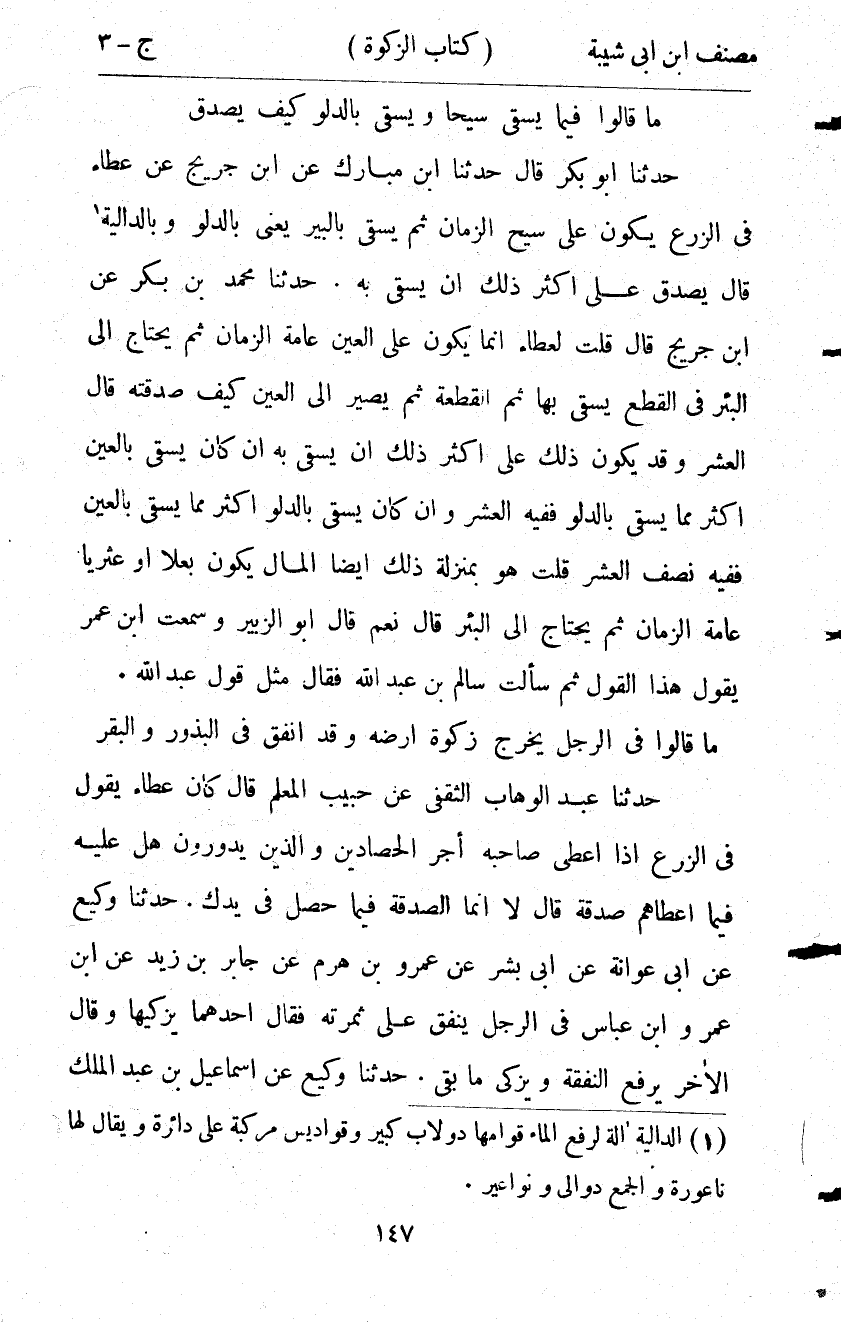 مصنف ابن ابى شيبة ( كتاب الزكوة ) ج - ٣
ما قالوا فيما يسقى سيحا و يسقى بالدلو كيف يصدق
حدثنا ابو بكر قال حدثنا ابن مبارك عن ابن جريج عن عطاء
فى الزرع يكون على سيح الزمان ثم يسقى بالبير يعنى بالدلو و بالدالية١
قال يصدق على اكثر ذلك ان يسقى به . حدثنا محمد بن بكر عن
ابن جريج قال قلت لعطاء انما يكون على العين عامة الزمان ثم يحتاج الى
البئر فى القطع يسقى بها ثم القطعة ثم يصير الى العين كيف صدقته قال
العشر و قد يكون ذلك على اكثر ذلك ان يسقى به ان كان يسقى بالعين
اكثر مما يسقى بالدلو ففيه العشر و ان كان يسقى بالدلو اكثر مما يسقى بالعين
ففيه نصف العشر قلت هو بمنزلة ذلك ايضا المال يكون بعلا او عثريا
عامة الزمان ثم يحتاج الى البئر قال نعم قال ابو الزبير و سمعت ابن عمر
يقول هذا القول ثم سألت سالم بن عبد الله فقال مثل قول عبد الله .
ما قالوا فى الرجل يخرج زكوة ارضه و قد انفق فى البذور و البقر
حدثنا عبد الوهاب الثقفى عن حبيب المعلم قال كان عطاء يقول
فى الزرع اذا اعطى صاحبه أجر الحصادين و الذين يدورون هل عليه
فيما اعطاهم صدقة قال لا انما الصدقة فيما حصل فى يدك . حدثنا وكيع
عن ابى عوانة عن ابى بشر عن عمرو بن هرم عن جابر بن زيد عن ابن
عمر و ابن عباس فى الرجل ينفق على ثمرته فقال احدهما يزكيها و قال
الأخر يرفع النفقة و يزكى ما بقى . حدثنا وكيع عن اسماعيل بن عبد الملك
(١) الدالية الة لرفع الماء قوامها دولاب كبير و قواديس مركبة على دائرة و يقال لها
ناعورة و الجمع دوالى و نواعير .
١٤٧